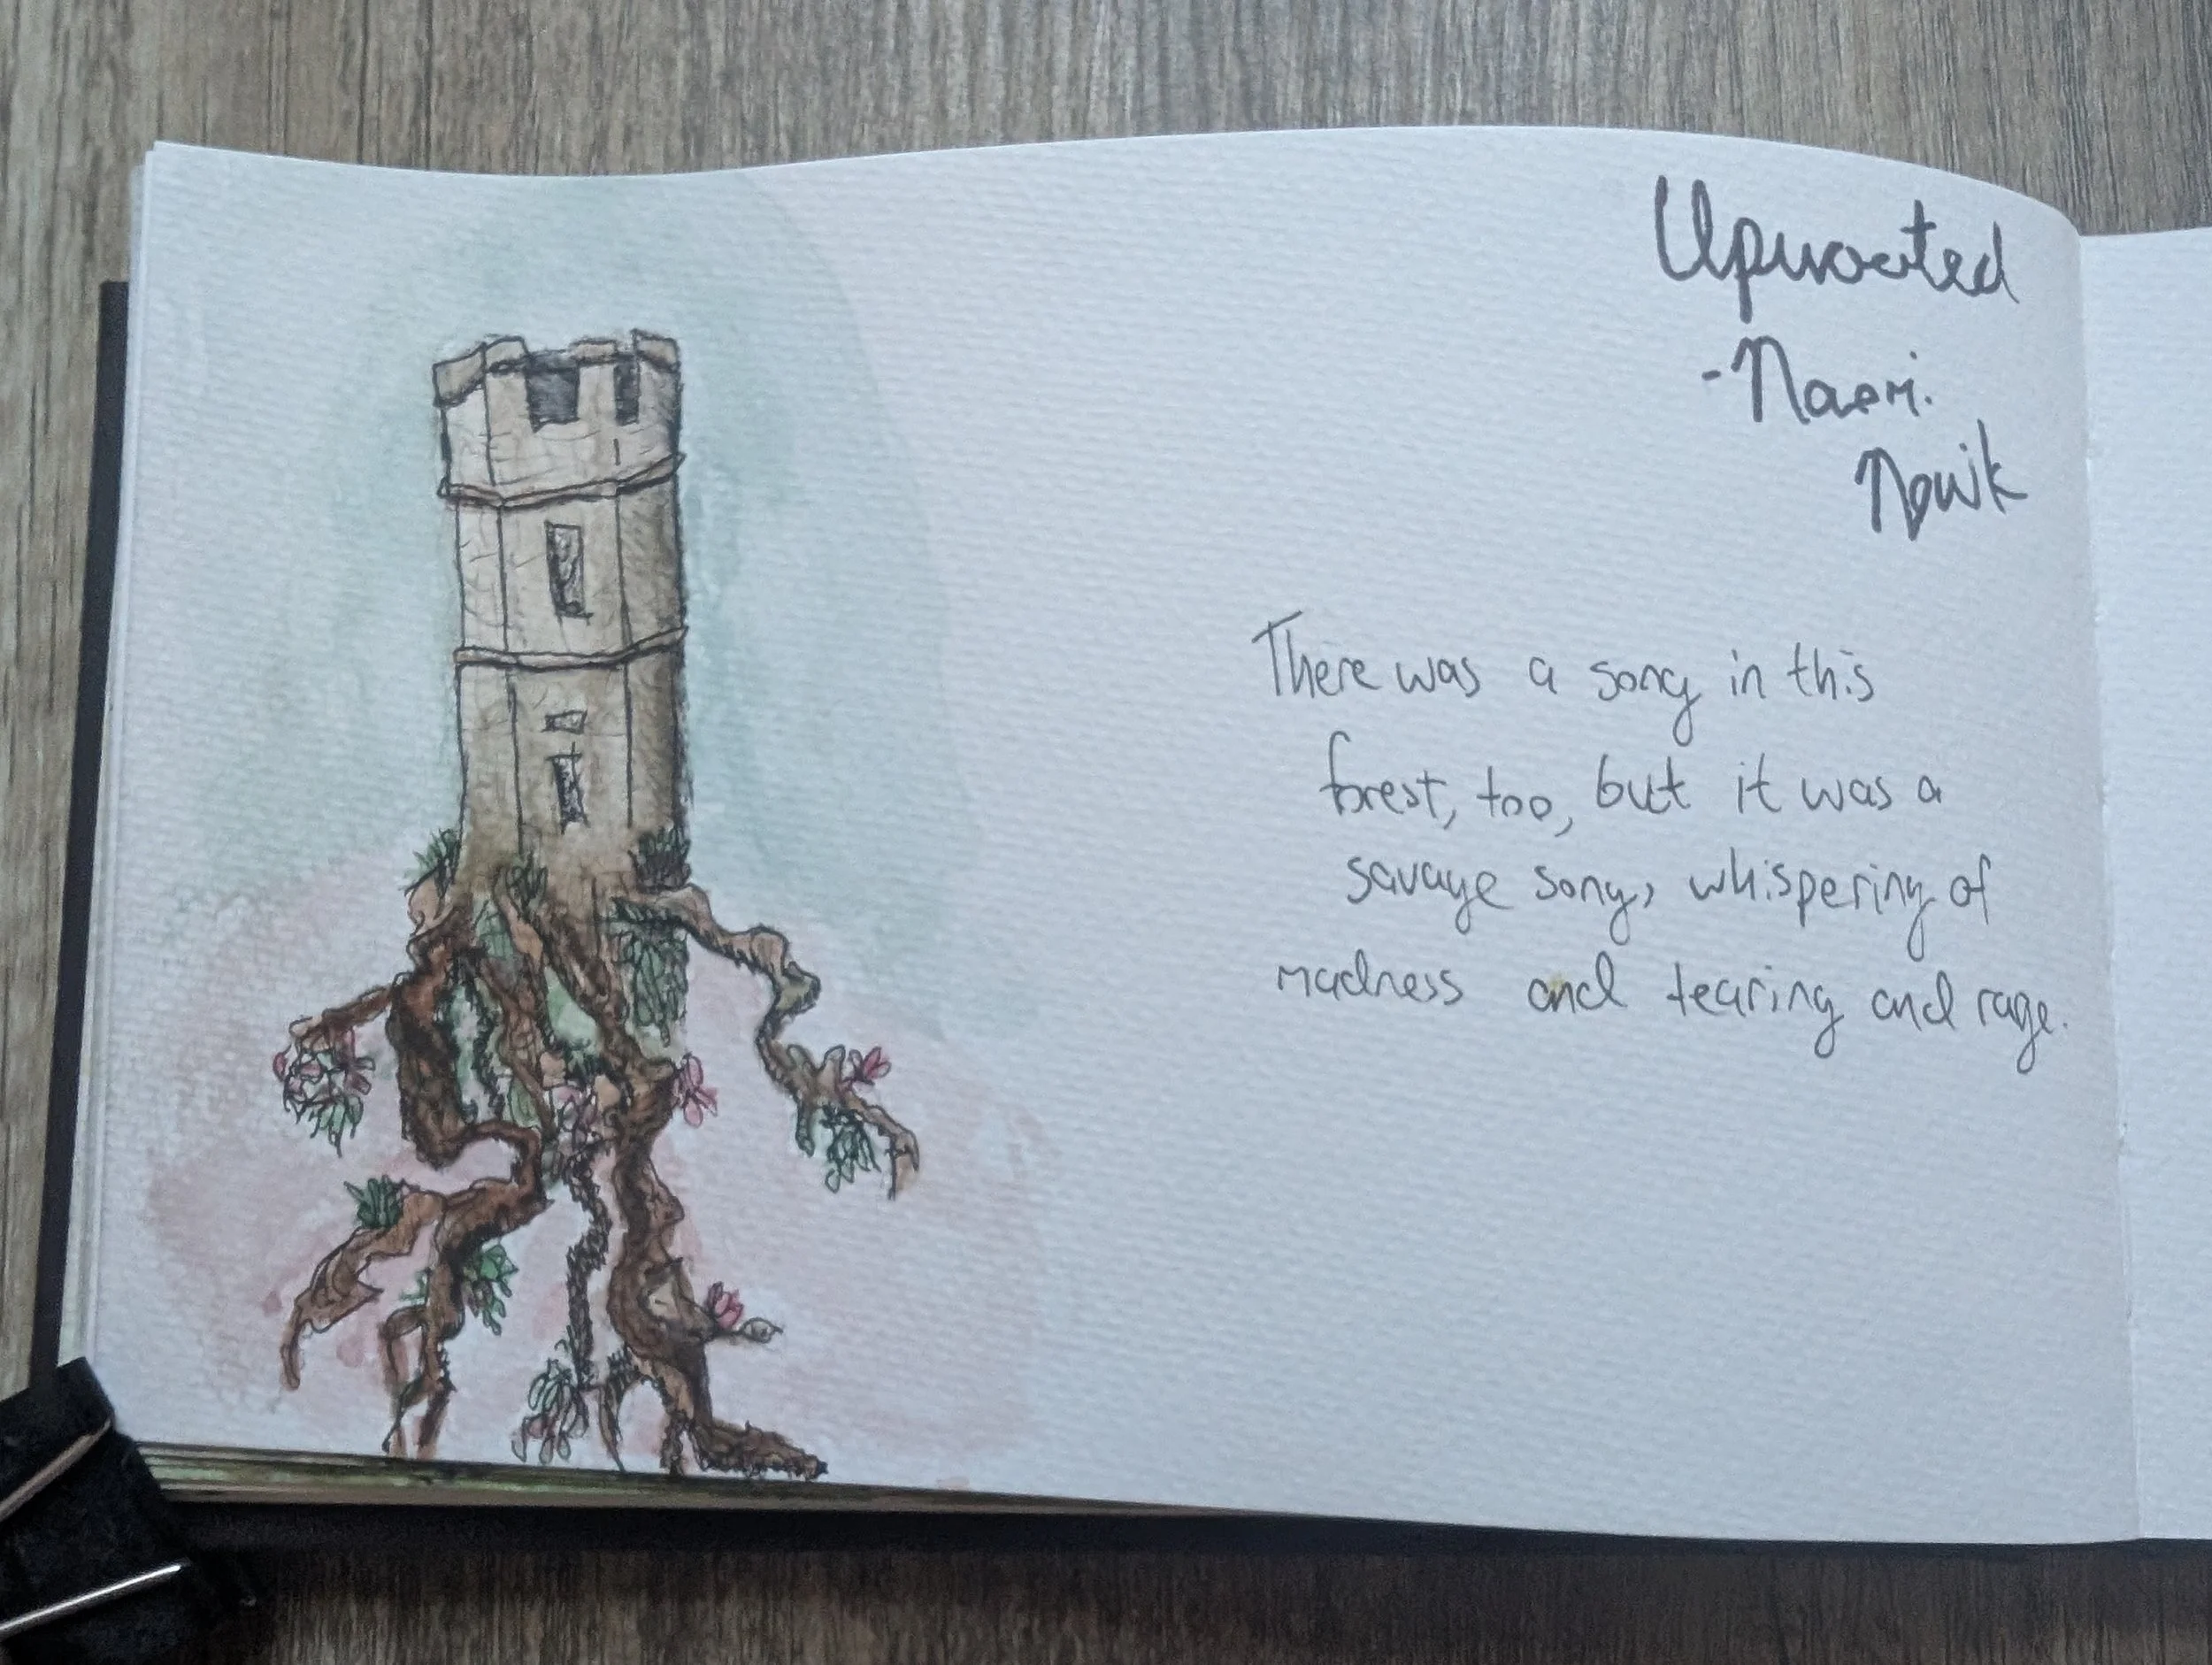 Uprooted
- Naomi
Novik
There was a song in this
forest, too, but it was a
savage song, whispering of
madness and tearing and rage.